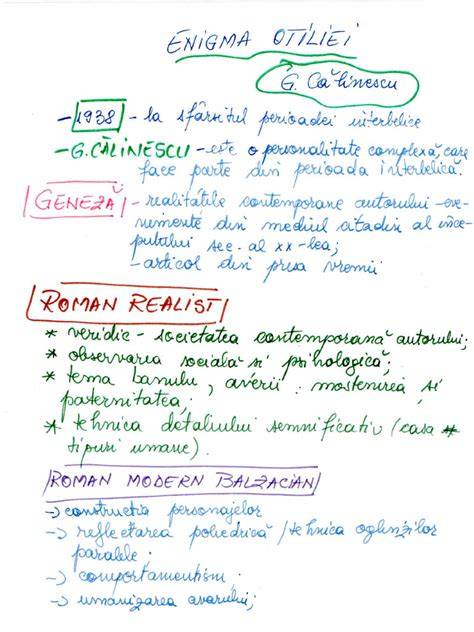 ENIGMA OTILIEI
G. Călinescu
- 1938 - la sfârsitul perioadei interbelice
- G. CĂLINESCU - este o personalitate complexă, care
face parte din perioada interbelică.
GENEZĂ - realitătile contemporane autorului - eve-
nimente din mediul citadin al înce-
putului sec. al XX-lea;
- articol din presa vremii
ROMAN REALIST
* veridic - societatea contemporană autorului;
* observarea socială si psihologică;
* tema banului, averii: mostenirea, si
paternitatea;
* tehnica detaliului semnificativ (casa
tipuri umane).
ROMAN MODERN BALZACIAN
-> constructia personajelor
-> reflectarea poliedrică / tehnica oglinzilor
paralele;
-> comportamentism;
-> umanizarea avarului;